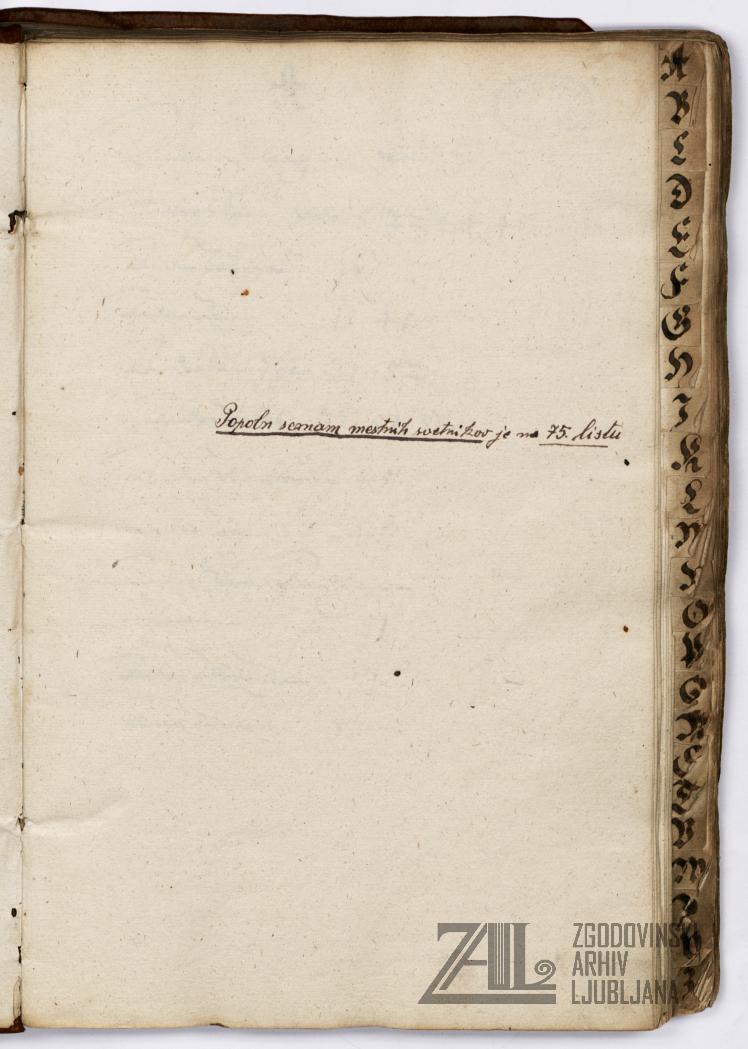 Popoln seznam mestnih svetnikov je na 75. listu
A
B
C
D
E
F
G
H
I
K
L
M
N
O
P
Q
R
S
T
V
W
ZAL ZGODOVINSKI
ARHIV
LJUBLJANA